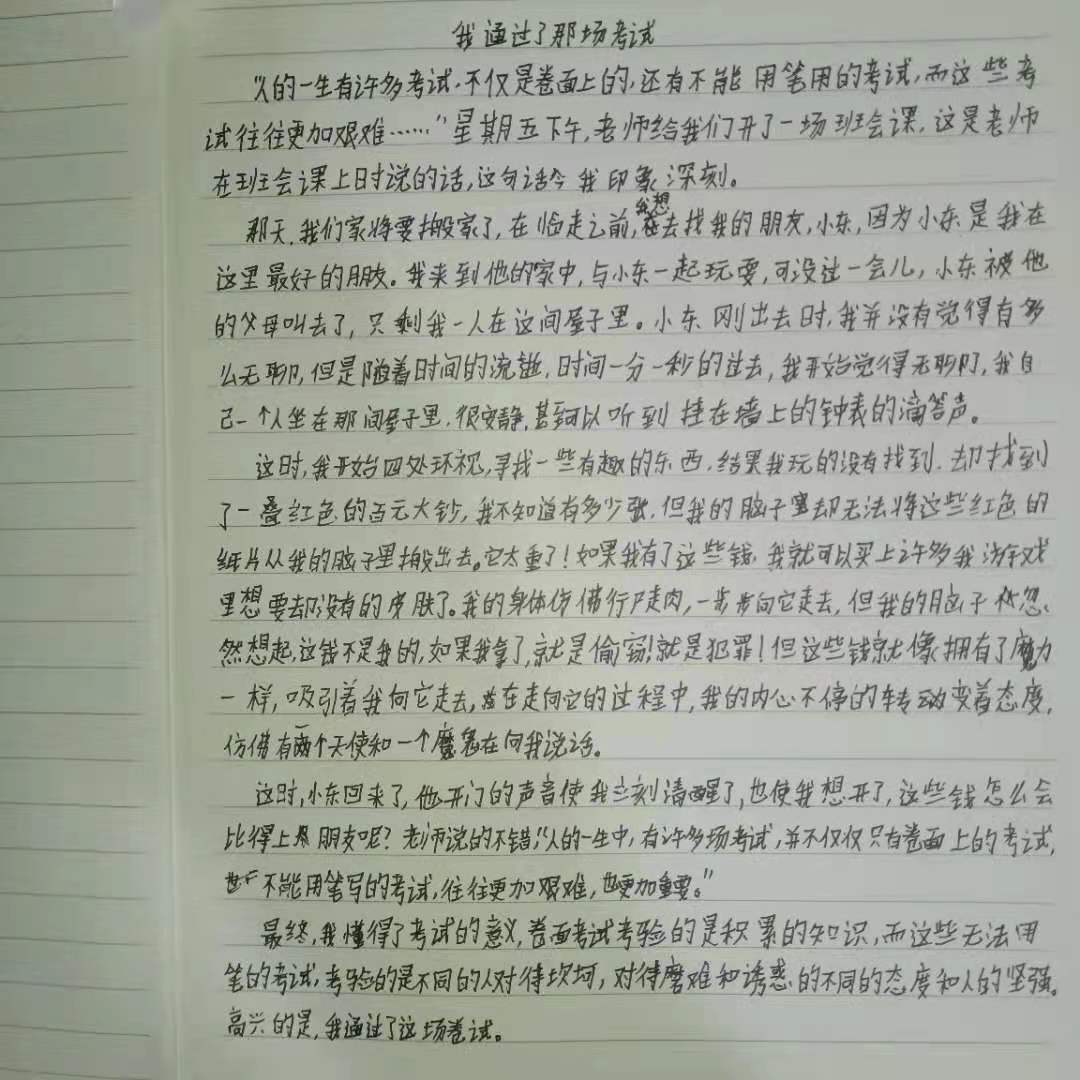 我通过了那场考试
“人的一生有许多考试，不仅是卷面上的，还有不能用笔用的考试，而这些考
试往往更加艰难……”星期五下午，老师给我们开了一场班会课，这是老师
在班会课上时说的话，这句话令我印象深刻。
那天，我们家将要搬家了，在临走之前，我想去找我的朋友，小东，因为小东是我在
这里最好的朋友。我来到他的家中，与小东一起玩耍，可没过一会儿，小东被他
的父母叫去了，只剩我一人在这间屋子里。小东刚出去时，我并没有觉得有多
么无聊，但是随着时间的流逝，时间一分一秒的过去，我开始觉得无聊，我自
己一个人坐在那间屋子里，很安静，甚至可以听到挂在墙上的钟表的滴答声。
这时，我开始四处环视，寻找一些有趣的东西，结果我玩的没有找到，却找到
了一叠红色的百元大钞，我不知道有多少张，但我的脑子里却无法将这些红色的
纸片从我的脑子里搬出去。它太重了！如果我有了这些钱，我就可以买上许多我游戏
里想要却没有的皮肤了。我的身体仿佛行尸走肉，一步步向它走去，但我的脑子忽
然想起，这钱不是我的，如果我拿了，就是偷窃！就是犯罪！但这些钱就像拥有了魔力
一样，吸引着我向它走去，在走向它的过程中，我的内心不停的转动变着态度，
仿佛有一个天使和一个魔鬼在向我说话。
这时，小东回来了，他开门的声音使我立刻清醒了，也使我想开了，这些钱怎么会
比得上朋友呢？老师说的不错，“人的一生中，有许多场考试，并不仅仅只有卷面上的考试，
不能用笔写的考试，往往更加艰难，也更加重要。”
最终，我懂得了考试的意义，卷面考试考验的是积累的知识，而这些无法用
笔的考试，考验的是不同的人对待坎坷，对待磨难和诱惑的不同的态度和人的坚强。
高兴的是，我通过了这场卷试。